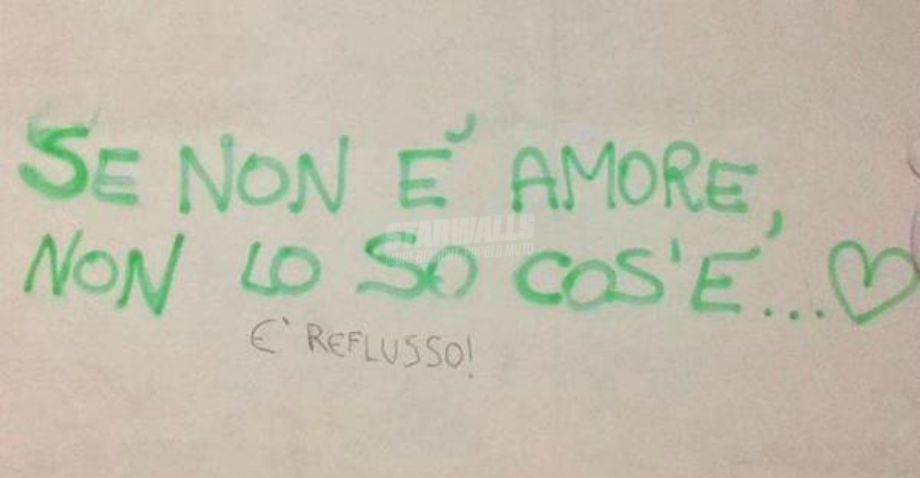 SE NON É AMORE,
NON LO SO COS'É...♡
STARWALLS
MURI BIANCHI POPOLO MUTO
E' REFLUSSO!